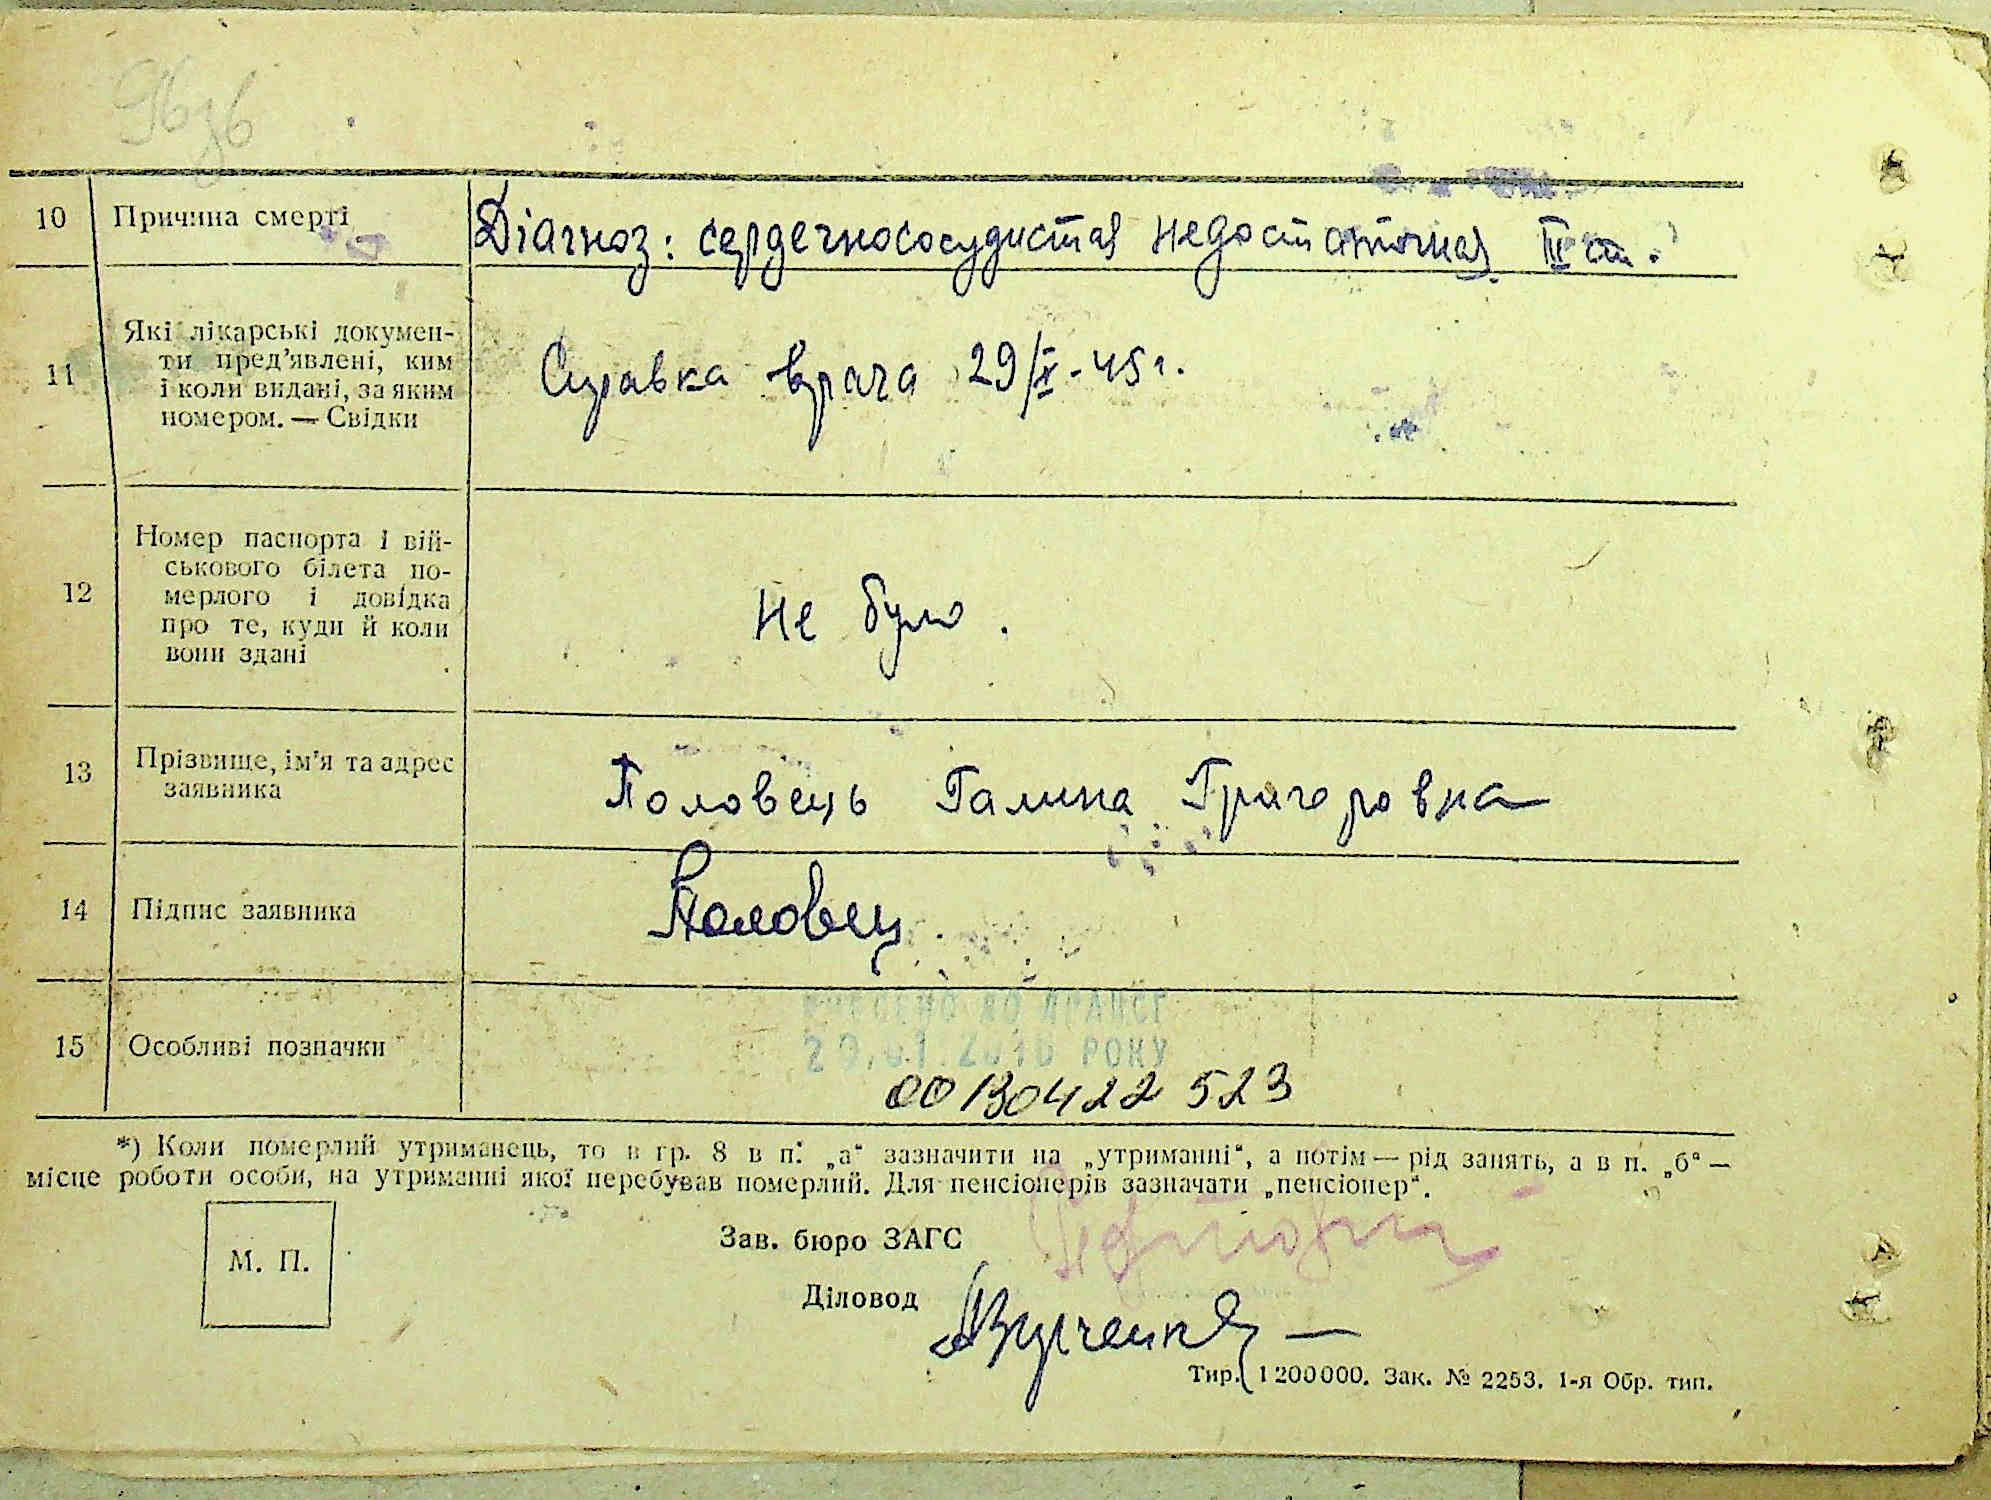 10 Причина смерті Діагноз: сердечнососудистая недостаточная III ст.
11 Які лікарські докумен-
ти пред'явлені, ким
і коли видані, за яким
номером. — Свідки
Справка врача 29/X-45 г.
12 Номер паспорта і вій-
ськового білета по-
мерлого і довідка
про те, куди й коли
вони здані
Не було.
13 Прізвище, ім'я та адрес
заявника
Половець Галина Григоровна
14 Підпис заявника Половец
ВНЕСЕНО ДО ДРАЦСГ
РОКУ
15 Особливі позначки
00130422523
*) Коли померлий утриманець, то в гр. 8 в п. „а“ зазначити на „утриманні“, а потім — рід занять, а в п. „б“ —
місце роботи особи, на утриманні якої перебував померлий. Для пенсіонерів зазначати „пенсіонер“.
М. П.
Зав. бюро ЗАГС
Діловод
Тир. 1 200 000. Зак. № 2253. 1-я Обр. тип.